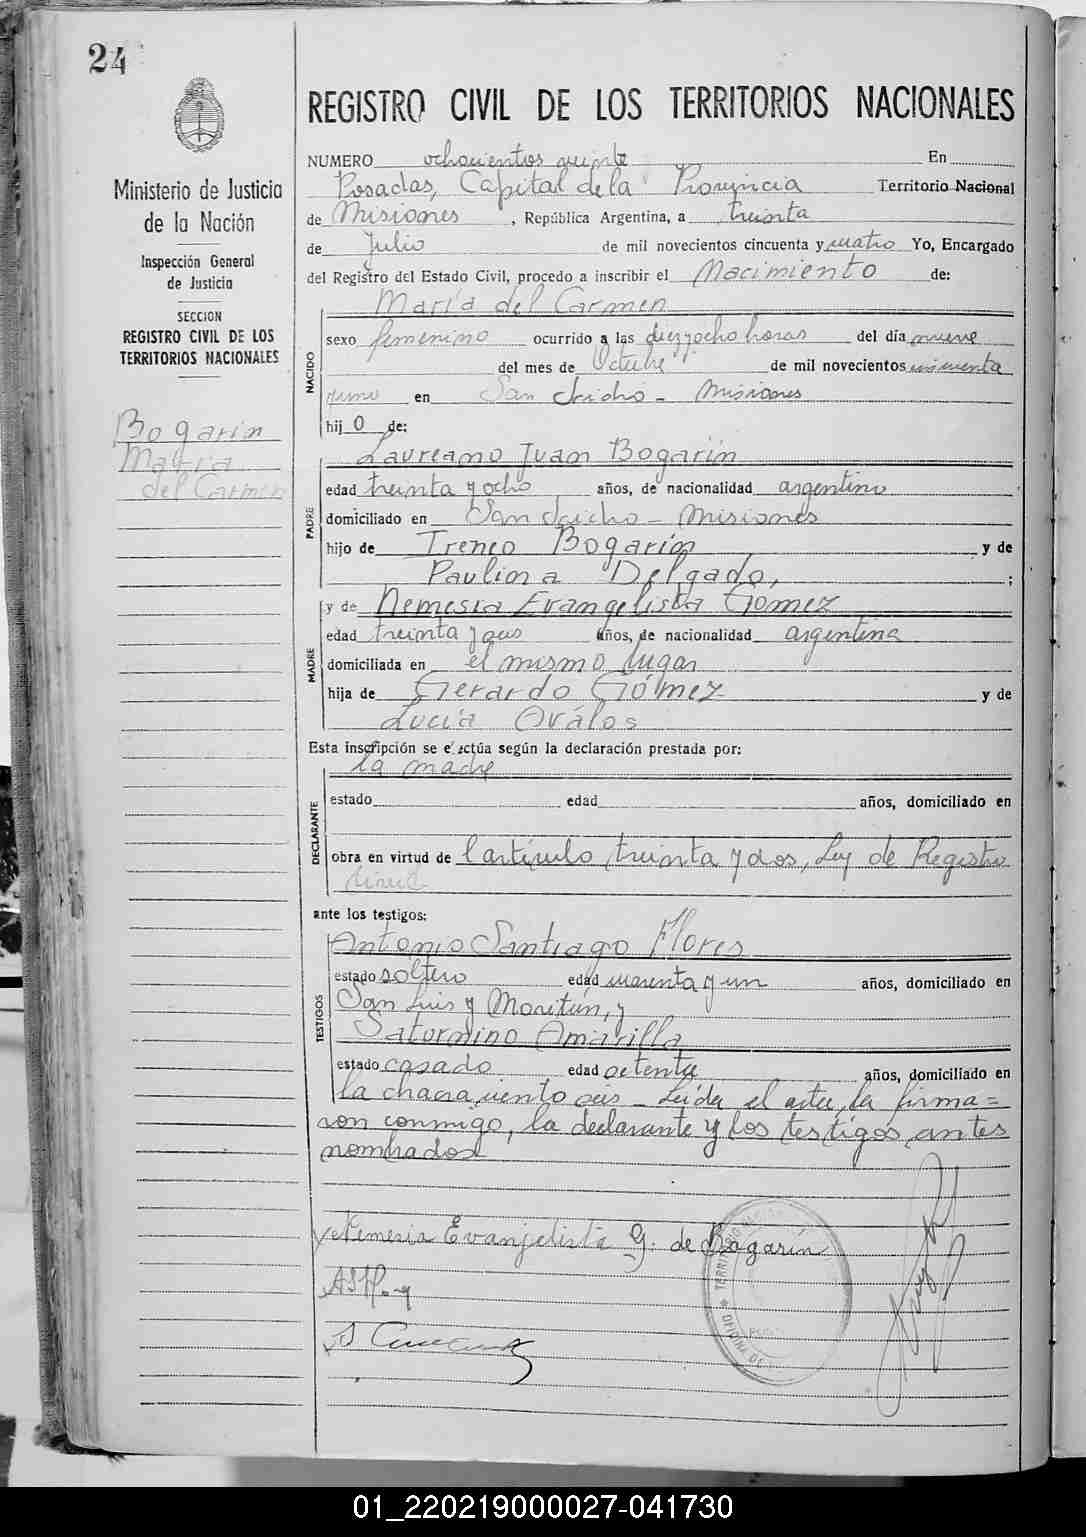 24
REGISTRO CIVIL DE LOS TERRITORIOS NACIONALES
Ministerio de Justicia
de la Nación
Inspección General
de Justicia
SECCION
REGISTRO CIVIL DE LOS
TERRITORIOS NACIONALES
Bogarín
María
del Carmen
NUMERO ochocientos veinte En
Posadas, Capital de la Provincia Territorio Nacional
de Misiones, República Argentina, a treinta
de Julio de mil novecientos cincuenta y cuatro Yo, Encargado
del Registro del Estado Civil, procedo a inscribir el Nacimiento de:
María del Carmen
NACIDO
sexo femenino ocurrido a las diez y ocho horas del día nueve
del mes de Octubre de mil novecientos cincuenta
y uno en San - Misiones
hij o de:
Laureano Juan Bogarín
PADRE
edad treinta y ocho años, de nacionalidad argentino
domiciliado en San - Misiones
hijo de Ireneo Bogarín y de
Paulina Delgado, ;
y de Nemesia Evangelista Gómez
MADRE
edad treinta y años, de nacionalidad argentina
domiciliada en el mismo lugar
hija de Gerardo Gómez y de
Lucía Ovalos
Esta inscripción se efectúa según la declaración prestada por:
la madre
DECLARANTE
estado edad años, domiciliado en
obra en virtud de l artículo treinta y dos, Ley de Registro
Civil
ante los testigos:
Antonio Santiago Flores
TESTIGOS
estado soltero edad cuarenta y un años, domiciliado en
San Luis y Moritán, y
Saturnino Amarilla
estado casado edad setenta años, domiciliado en
la chacra ciento seis - Leída el acta, la firma=
ron conmigo, la declarante y los testigos antes
nombrados
Nemesia Evanjelista G. de Bogarín
01_220219000027-041730